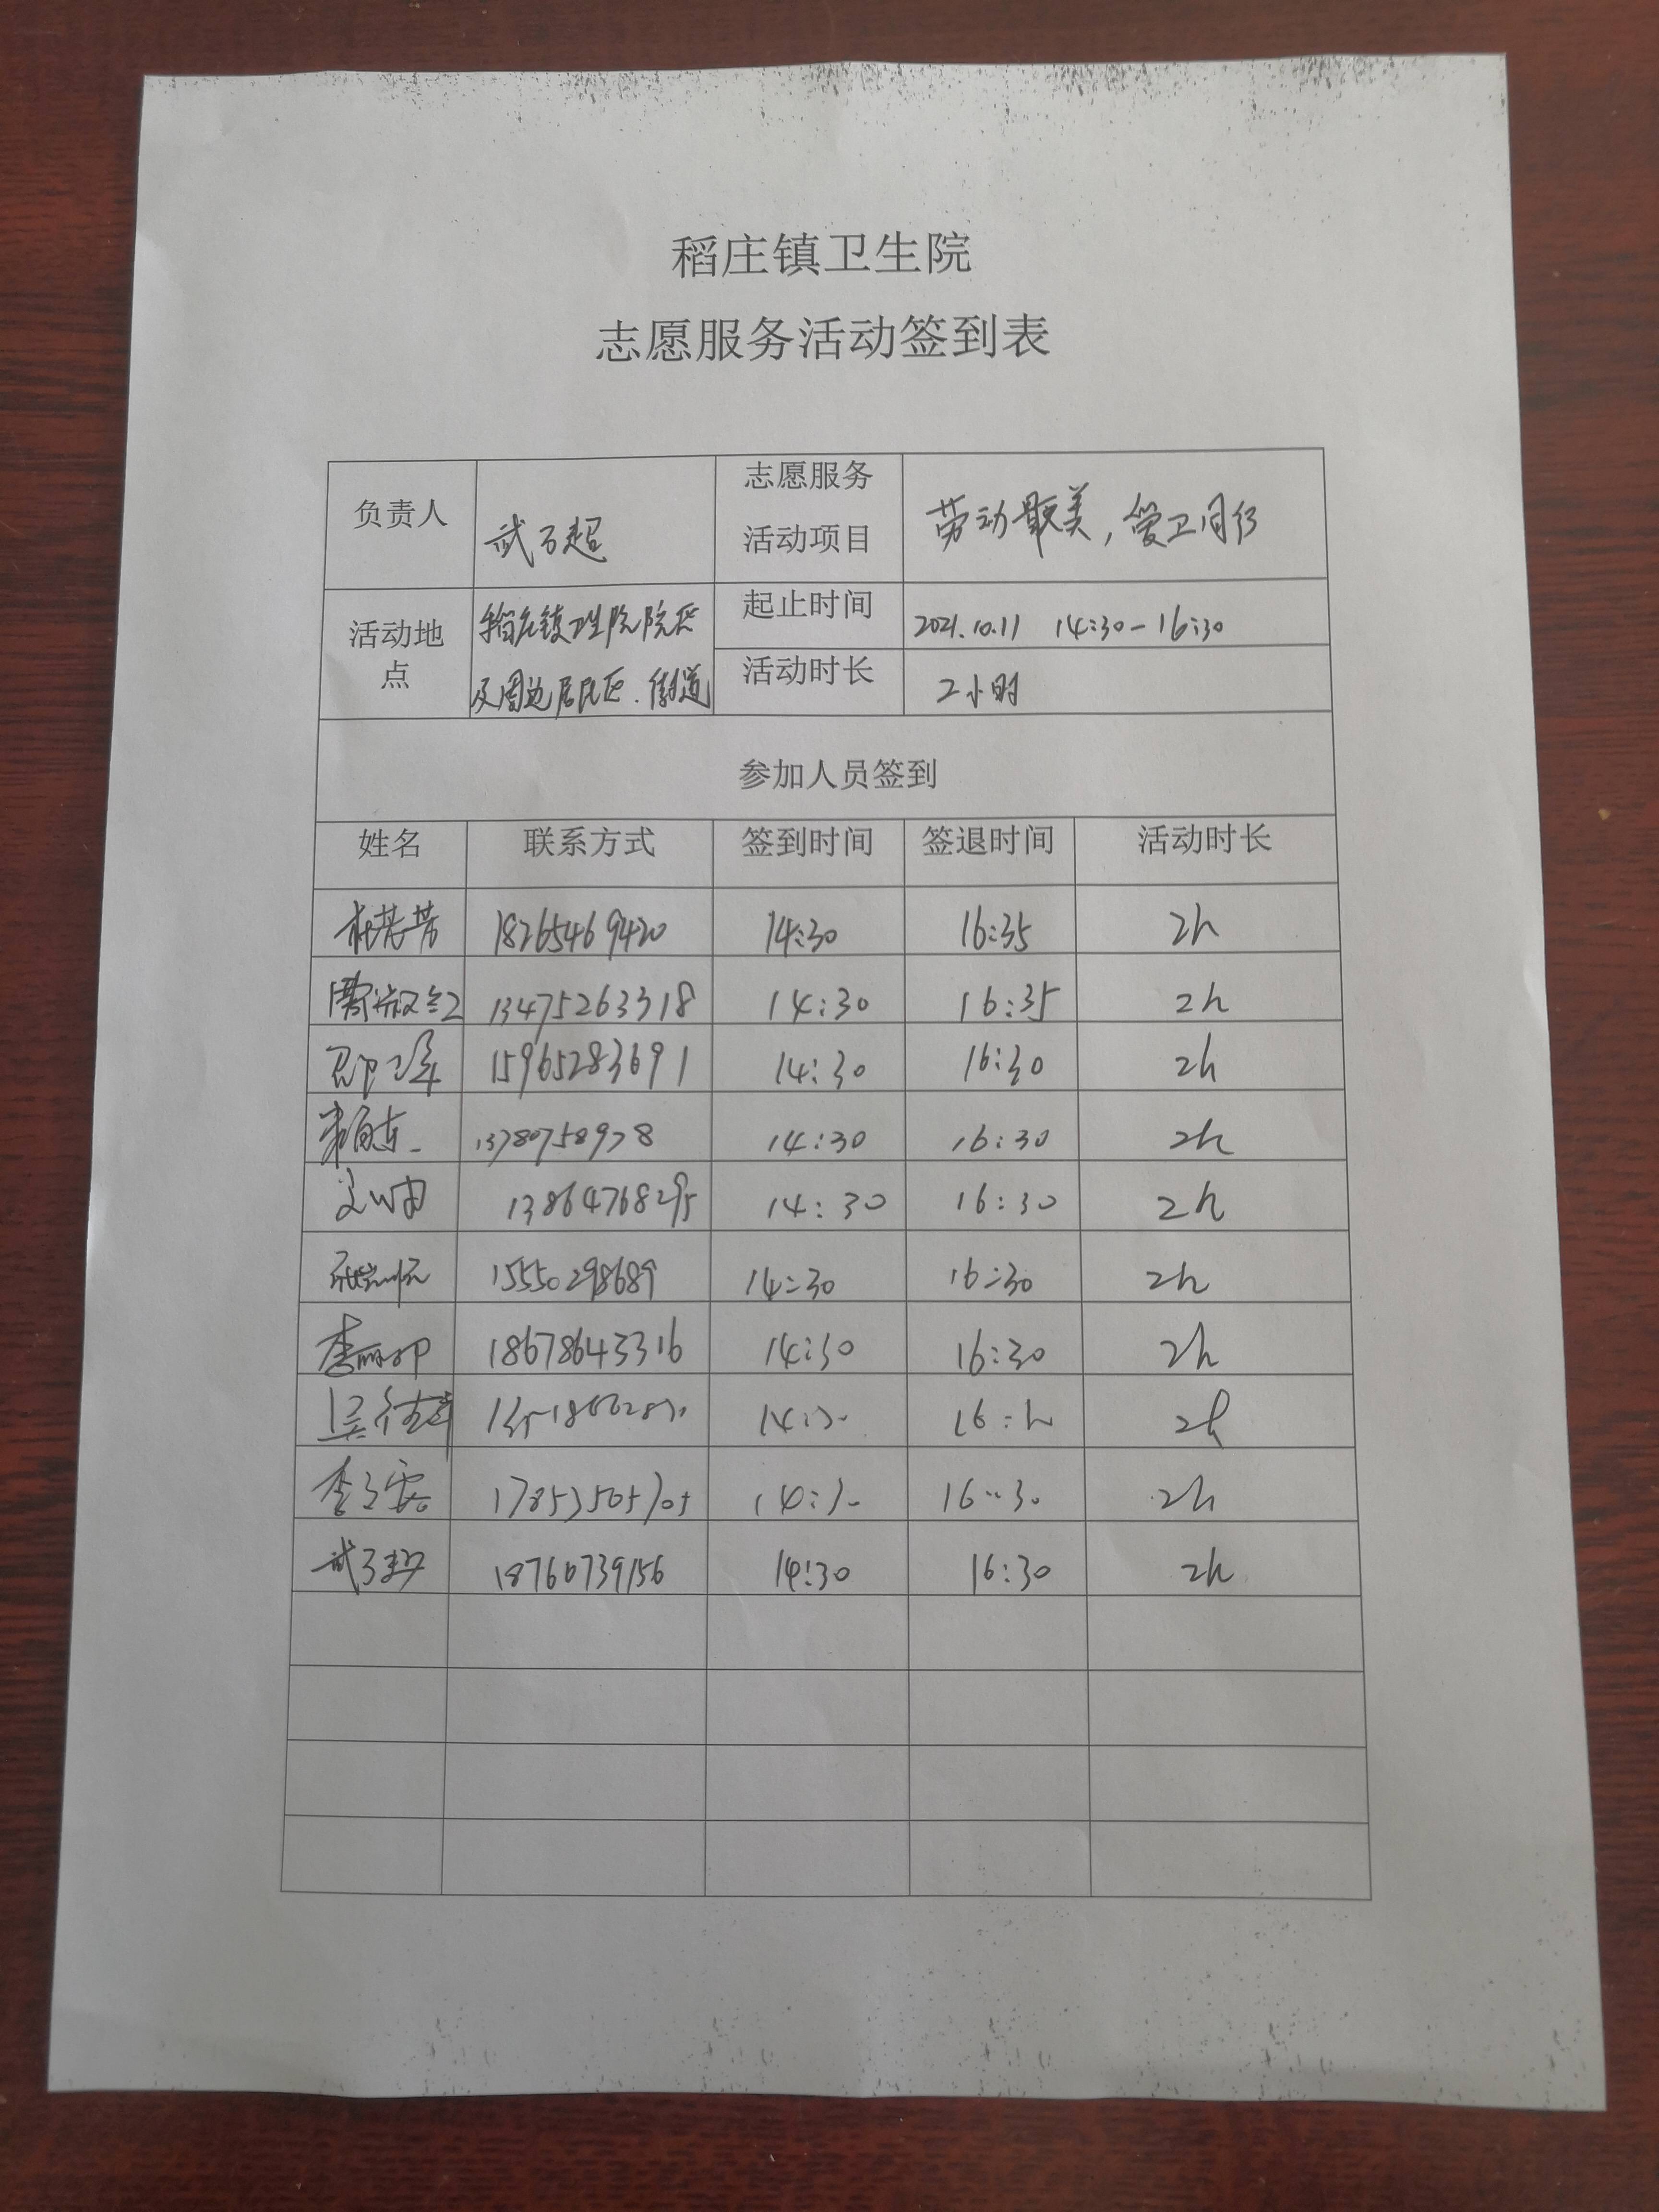 稻庄镇卫生院
志愿服务活动签到表
负责人 武子超 志愿服务活动项目 劳动最美，爱卫同行
活动地点 稻庄镇卫生院院区及周边居民区.街道
起止时间 2021.10.11 14:30-16:30
活动时长 2小时
参加人员签到
姓名 联系方式 签到时间 签退时间 活动时长
18265469420 14:30 16:35 2h
13475263318 14:30 16:35 2h
15965283691 14:30 16:30 2h
14:30 16:30 2h
13864768295 14:30 16:30 2h
15550298689 14:30 16:30 2h
18678643316 14:30 16:30 2h
14:30 2h
14:30 16:30 2h
武子超 18760739156 14:30 16:30 2h